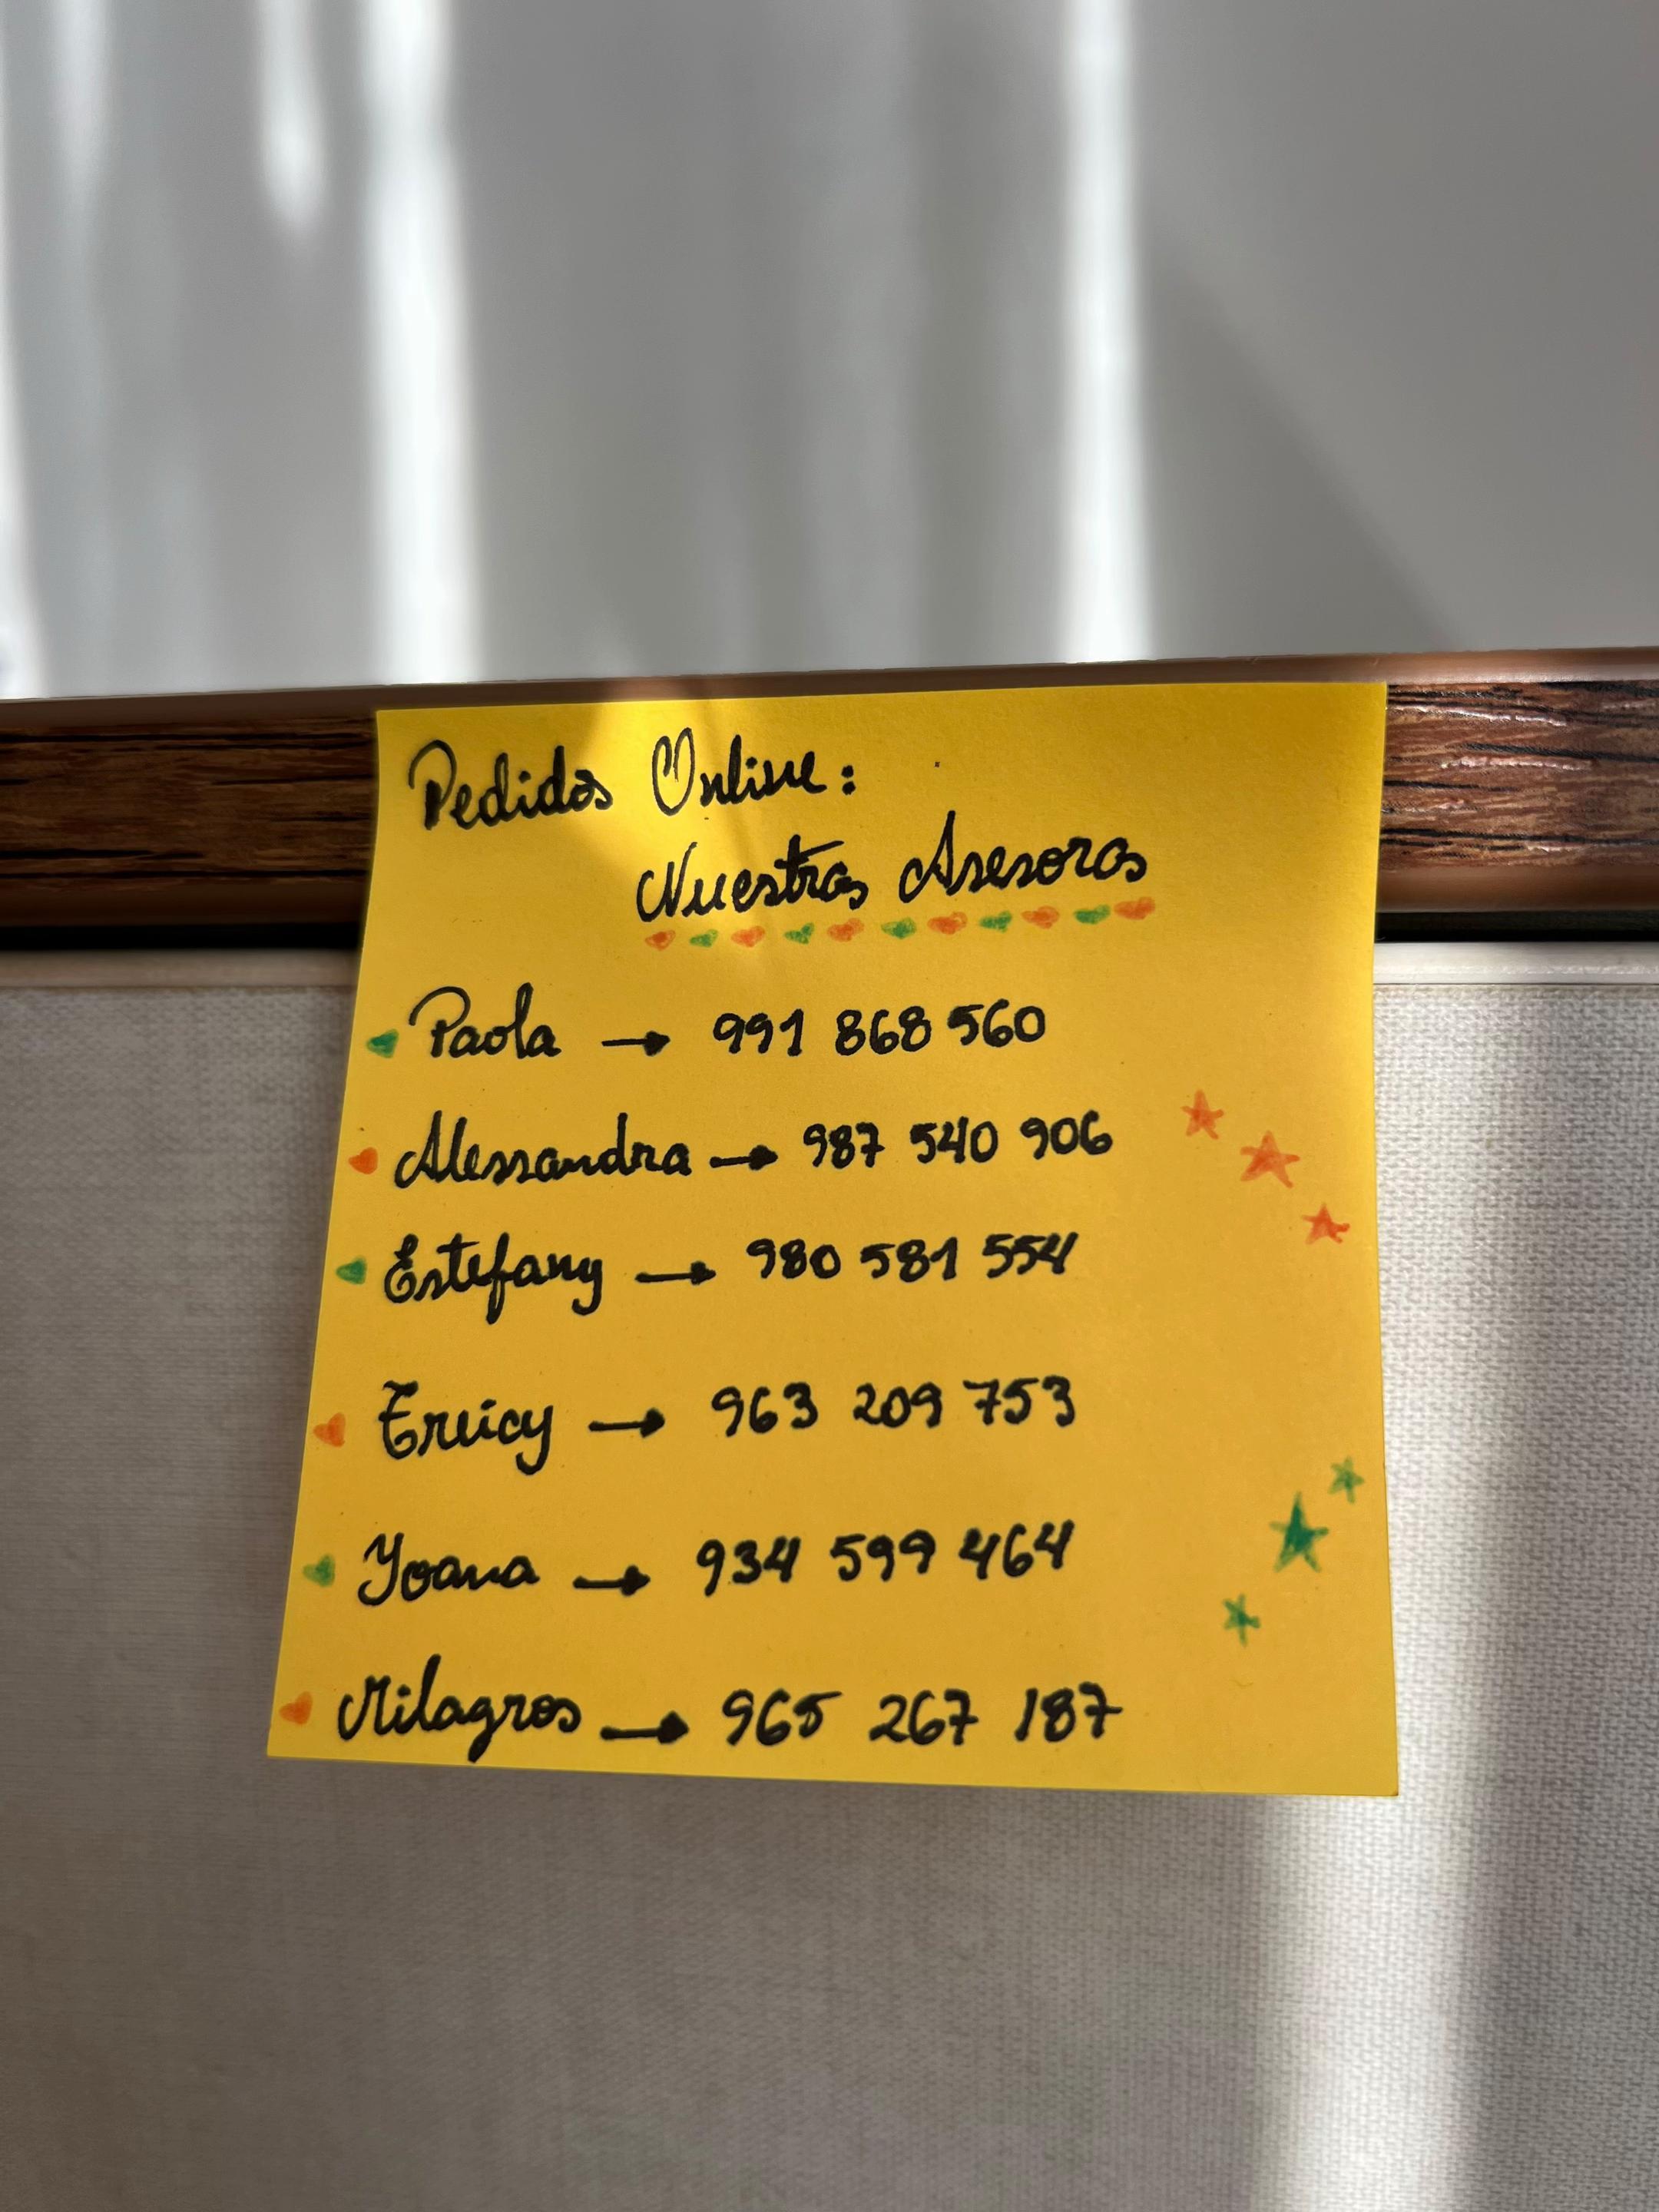 Pedidos Online:
Nuestras Asesoras
Paola → 991 868 560
Alessandra → 987 540 906
Estefany → 980 581 554
Ereicy → 963 209 753
Yoana → 934 599 464
Milagros → 965 267 187